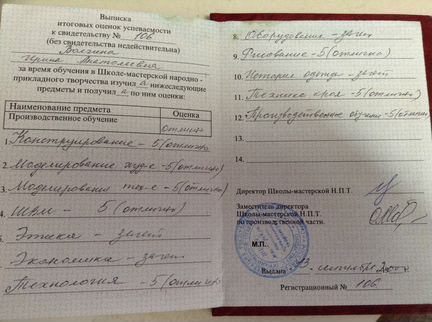 Выписка
итоговых оценок успеваемости
к свидетельству № 106
(без свидетельства недействительна)
Ирина Анатолевна
за время обучения в Школе-мастерской народно -
прикладного творчества изучил а нижеследующие
предметы и получил а по ним оценки:
Наименование предмета Оценка
Производственное обучение отлич
1. Конструирование - 5 (отлично
2. Моделирование худ-е - 5 (отлично)
3. Моделирования тех-е - 5 (отлично)
4. - 5 (отлично)
5. Этика - зачет
Экономика - зачет
Технология - 5 (отлично
8. Оборудование - зачет
9. Рисование - 5 (отлично)
10. История одежды - зачет
11. Техника кроя - 5 (отлично)
12. Производственное обучение - 5 (отлично
13.
14.
Директор Школы-мастерской Н.П.Т.
Заместитель директора
Школы-мастерской Н.П.Т.
по производственной части.
М.П.
Выдана сентября
Регистрационный № 106